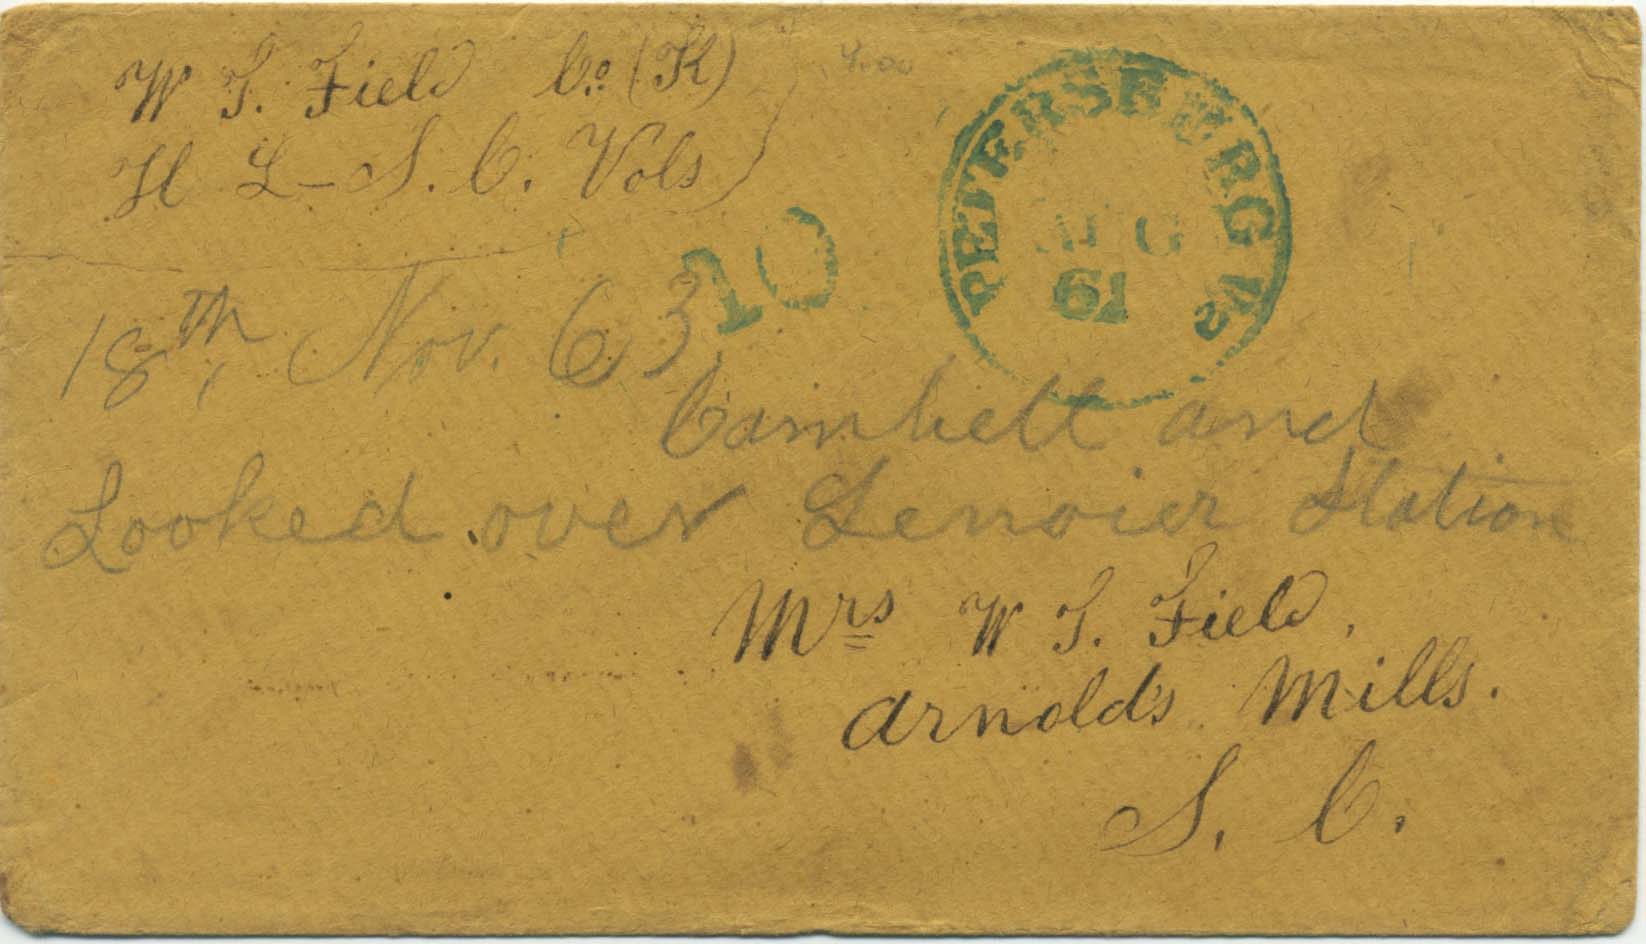 W T. Field Co. (K)
H L - S. C. Vols
10
PETERSBURG Va
AUG
61
18th, Nov. 63
Cambell and
Looked over Lenoier Station
Mrs W T. Field,
Arnold's Mills.
S. C.